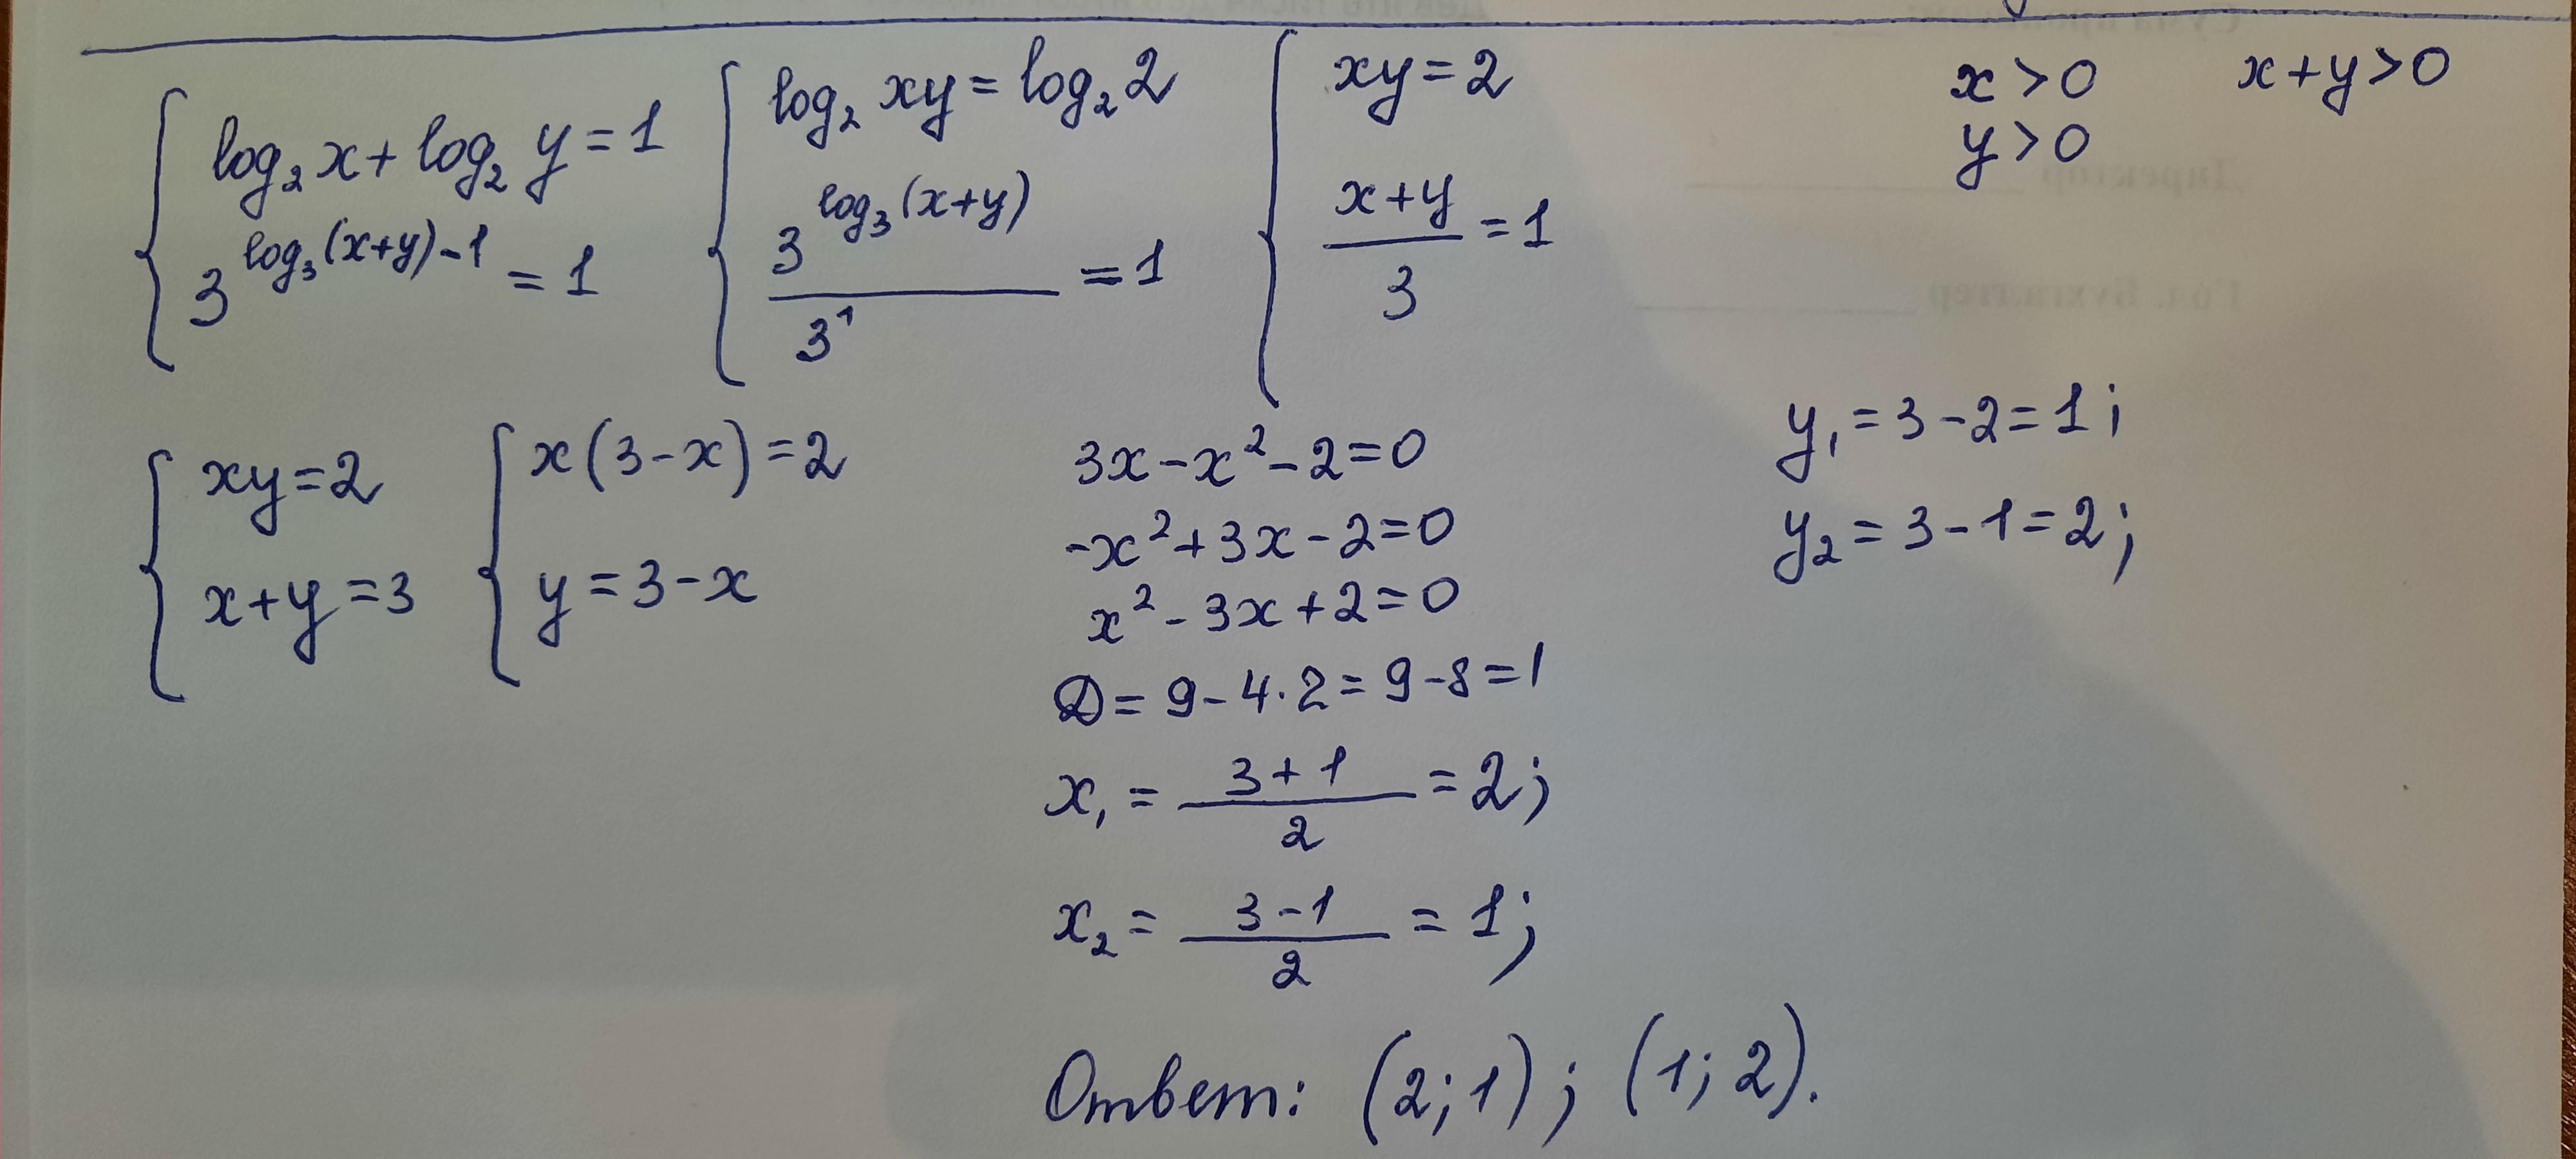 log₂x + log₂y = 1
3^(log₃(x+y)-1) = 1
log₂ xy = log₂2
3^(log₃(x+y)) / 3¹ = 1
xy = 2
(x+y) / 3 = 1
x > 0
y > 0
x+y > 0
xy = 2
x+y = 3
x(3-x) = 2
y = 3-x
3x - x² - 2 = 0
-x² + 3x - 2 = 0
x² - 3x + 2 = 0
D = 9 - 4·2 = 9 - 8 = 1
x₁ = (3+1) / 2 = 2;
x₂ = (3-1) / 2 = 1;
y₁ = 3-2 = 1;
y₂ = 3-1 = 2;
Ответ: (2;1); (1;2).